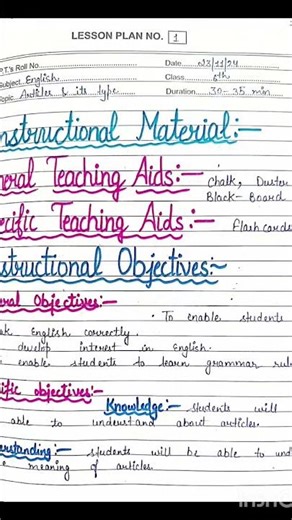 LESSON PLAN NO. 1
P.T's Roll No Date 23/11/24
Subject English Class 6th
Topic Articles & its type Duration 30-35 min
nstructional Material:-
neral Teaching Aids:- Chalk, Duster
Black-Board
ecific Teaching Aids:- Flash cards
structional Objectives:-
ral Objectives:- · To enable students
ak English correctly.
develop interest in English.
enable students to learn grammar rul
ific objectives:-
Knowledge:- students will
able to understand about articles.
erstanding:- students will be able to und
e meaning of articles.